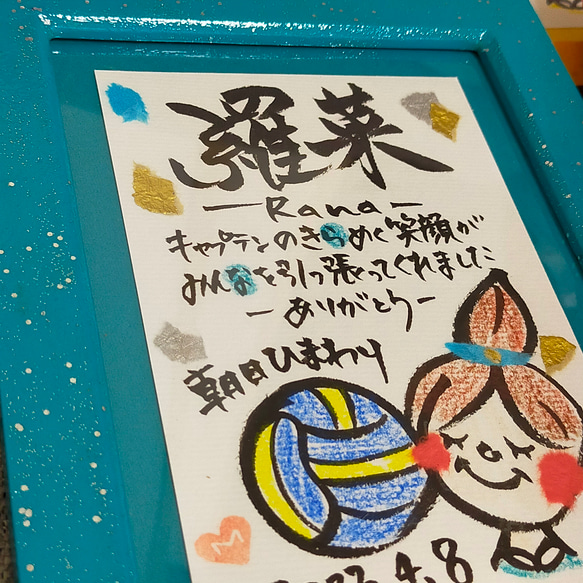 羅菜
ーRanaー
キャプテンのきらめく笑顔が
みんなを引っ張ってくれました
ーありがとうー
朝日ひまわり
M
4.8